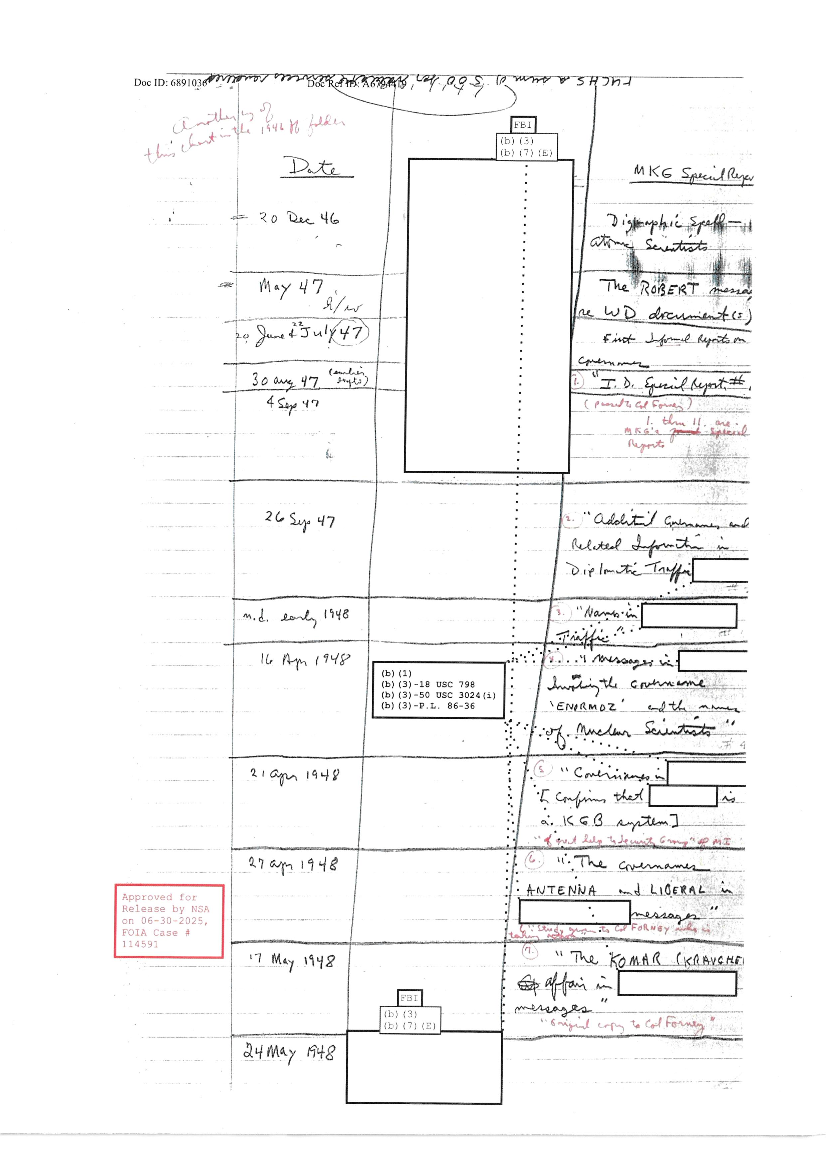 Doc ID: 6891036 Doc Ref ID: A6794419
FUCHS a sum of $500, for services rendered
Another of
this chart in the 1946 folder
FBI
(b) (3)
(b) (7) (E)
Date
MKG Special
20 Dec 46
Digraphic Spell —
atomic Scientists
May 47
The ROBERT
re WD document(s)
20 June & 22 July 47
First Informal Reports on
covernames
30 Aug 47
1. "I. D. Special Report #
4 Sep 47
(passed to Col Forney)
1. thru 11. are
MKG's Special
Reports
26 Sep 47
2. "Addit'l Covernames and
Related Information in
Diplomatic Traffic
n.d. early 1948
3. "Names in
Traffic"
16 Apr 1948
messages in
(b) (1)
(b) (3)-18 USC 798
(b) (3)-50 USC 3024(i)
(b) (3)-P.L. 86-36
Involving the covername
'ENORMOZ' and the names
of Nuclear Scientists"
21 Apr 1948
5. "Covernames in
[Confirms that is
a KGB system]
27 Apr 1948
6. "The covernames
ANTENNA and LIBERAL in
messages"
Approved for
Release by NSA
on 06-30-2025,
FOIA Case #
114591
17 May 1948
7. "The KOMAR
affair in
messages"
"original copy to Col Forney"
FBI
(b) (3)
(b) (7) (E)
24 May 1948